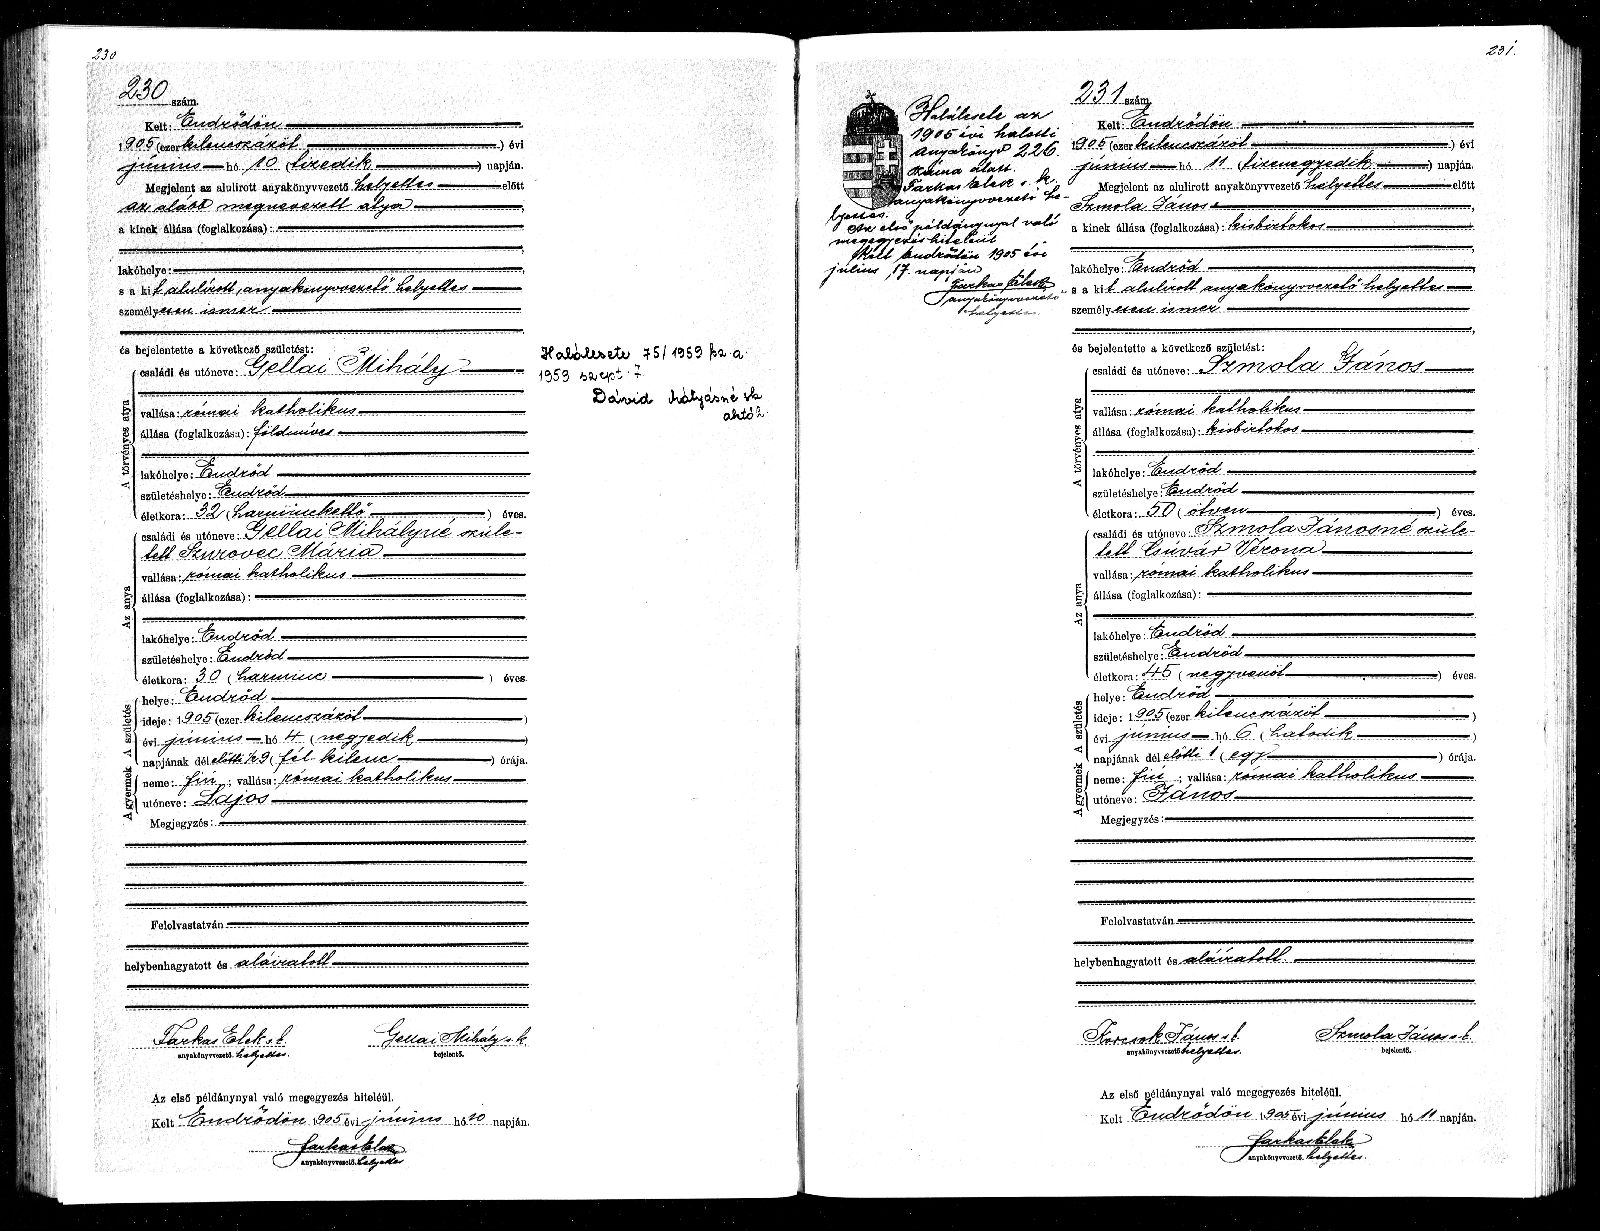 230
230 szám.
Kelt: Endrődön
1905 (ezer kilencszázöt) évi
június hó 10 (tizedik) napján.
Megjelent az alulirott anyakönyvvezető helyettes előtt
az alább megnevezett atya,
a kinek állása (foglalkozása):
lakóhelye:
s a kit alulirott anyakönyvvezető helyettes
személyesen ismer
és bejelentette a következő születést:
A törvényes atya
családi és utóneve: Gellai Mihály
vallása: római katholikus
állása (foglalkozása): földmíves
lakóhelye: Endrőd
születéshelye: Endrőd
életkora: 32 (harminckettő) éves.
Az anya
családi és utóneve: Gellai Mihályné szüle-
tett Szurovec Mária
vallása: római katholikus
állása (foglalkozása):
lakóhelye: Endrőd
születéshelye: Endrőd
életkora: 30 (harminc) éves.
A születés
helye: Endrőd
ideje: 1905 (ezer kilencszázöt)
évi június hó 4 (negyedik)
napjának dél előtti ½9 (fél kilenc) órája.
A gyermek
neme: fiú; vallása: római katholikus
utóneve: Lajos
Megjegyzés:
Felolvastatván
helybenhagyatott és aláiratott
Farkas Elek s. k. Gellai Mihály s. k.
anyakönyvvezető. helyettes. bejelentő.
Az első példánynyal való megegyezés hiteléül.
Kelt Endrődön 1905 évi június hó 10 napján.
Farkas Elek
anyakönyvvezető. helyettes.
Halálesete 75/1959 fsz. a.
1959 szept. 7
Dávid Mátyásné sk
231.
Halálesete az
1905 évi halotti
anyakönyv 226.
száma alatt.
Farkas Elek s. k.
anyakönyvvezető he-
lyettes.
Az első példánynyal való
megegyezés hiteléül
Kelt Endrődön 1905 évi
július 17. napján
Farkas Elek
anyakönyvvezető
helyettes.
231 szám.
Kelt: Endrődön
1905 (ezer kilencszázöt) évi
június hó 11 (tizenegyedik) napján.
Megjelent az alulirott anyakönyvvezető helyettes előtt
Szmola János,
a kinek állása (foglalkozása): kisbirtokos
lakóhelye: Endrőd
s a kit alulirott anyakönyvvezető helyettes
személyesen ismer
és bejelentette a következő születést:
A törvényes atya
családi és utóneve: Szmola János
vallása: római katholikus
állása (foglalkozása): kisbirtokos
lakóhelye: Endrőd
születéshelye: Endrőd
életkora: 50 (ötven) éves.
Az anya
családi és utóneve: Szmola Jánosné szüle-
tett Csúvár Verona
vallása: római katholikus
állása (foglalkozása):
lakóhelye: Endrőd
születéshelye: Endrőd
életkora: 45 (negyvenöt) éves.
A születés
helye: Endrőd
ideje: 1905 (ezer kilencszázöt)
évi június hó 6 (hatodik)
napjának dél előtti 1 (egy) órája.
A gyermek
neme: fiú; vallása: római katholikus
utóneve: János
Megjegyzés:
Felolvastatván
helybenhagyatott és aláiratott
János s. k. Szmola János s. k.
anyakönyvvezető. helyettes. bejelentő.
Az első példánynyal való megegyezés hiteléül.
Kelt Endrődön 1905 évi június hó 11 napján.
Farkas Elek
anyakönyvvezető. helyettes.